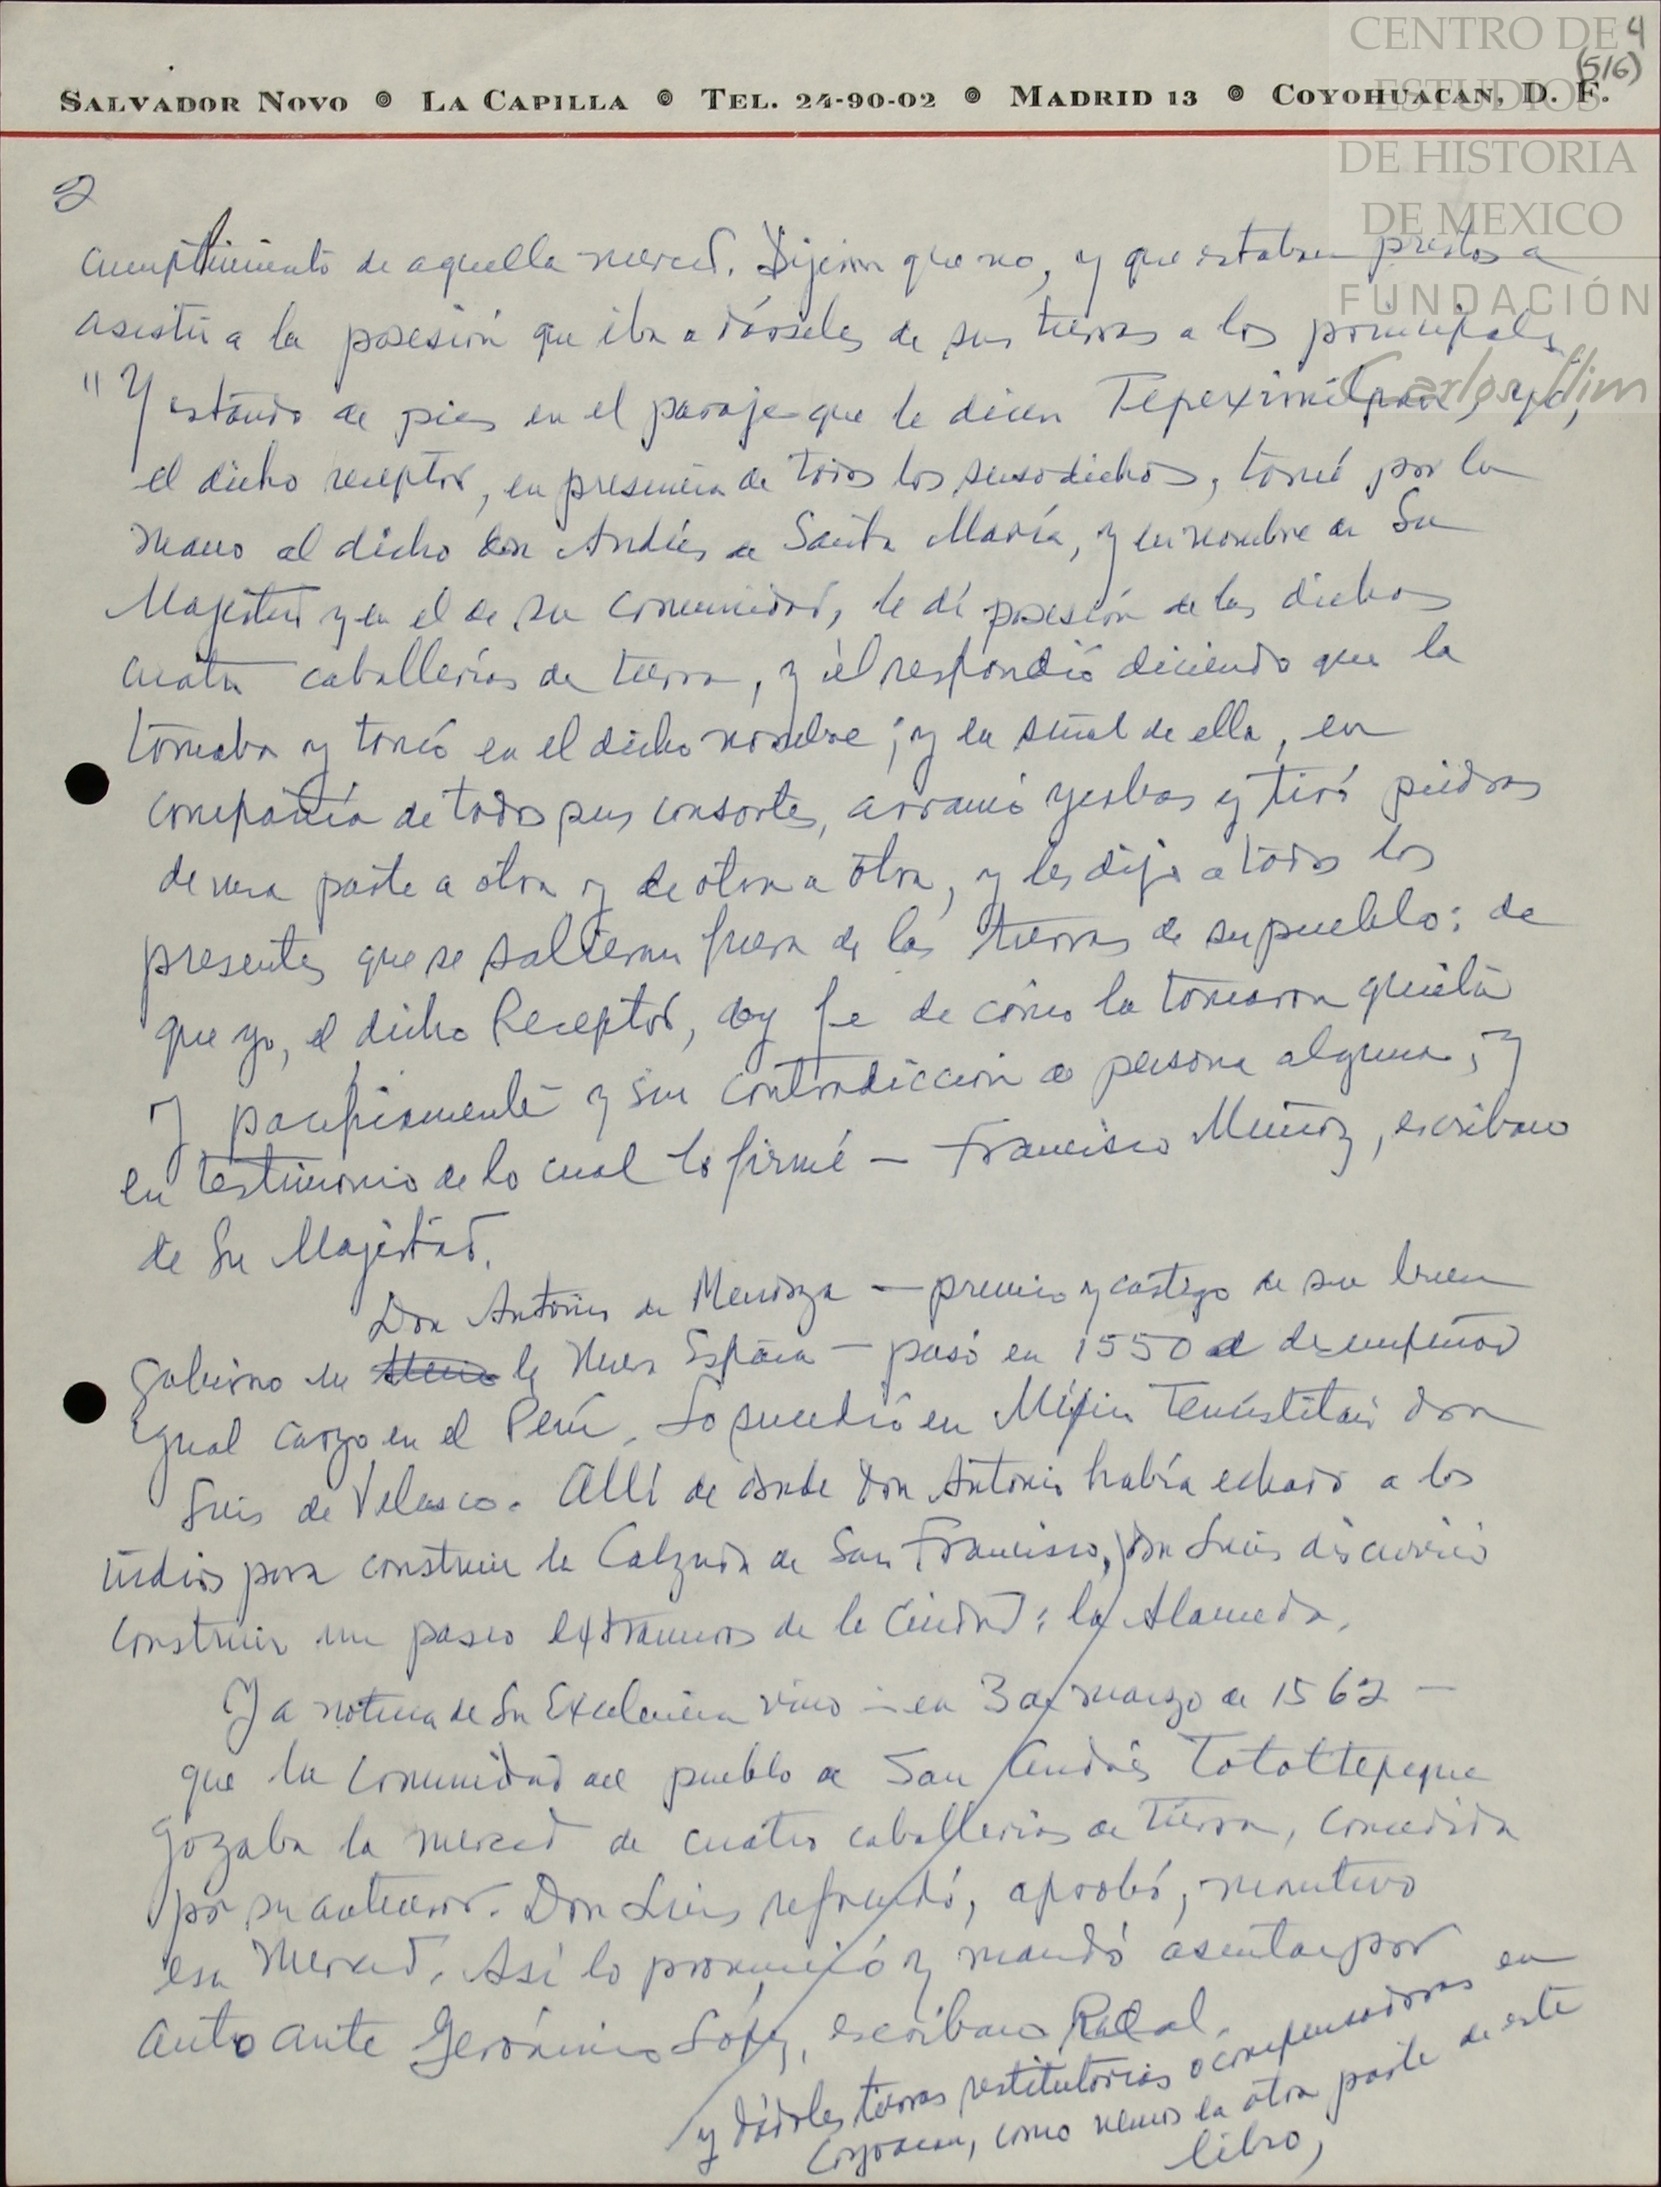 CENTRO DE
ESTUDIOS
DE HISTORIA
DE MEXICO
FUNDACIÓN
Carlos Slim
4
(5/6)
SALVADOR NOVO ◉ LA CAPILLA ◉ TEL. 24-90-02 ◉ MADRID 13 ◉ COYOHUACAN, D. F.
2
cumplimiento de aquella merced. Dijeron que no, y que estaban prestos a
asistir a la posesión que iba a dárseles de sus tierras a los principales.
"Y estando de pies en el paraje que le dicen Tepeximilpan, yo,
el dicho receptor, en presencia de todos los susodichos, tomé por la
mano al dicho don Andrés de Santa María, y en nombre de Su
Majestad y en el de su comunidad, le dí posesión de las dichas
cuatro caballerías de tierra, y él respondió diciendo que la
tomaba y tomó en el dicho nombre; y en señal de ella, en
compañía de todos sus consortes, arrancó yerbas y tiró piedras
de una parte a otra y de otra a otra, y les dijo a todos los
presentes que se salieran fuera de las tierras de su pueblo: de
que yo, el dicho Receptor, doy fe de cómo la tomaron quieta
y pacíficamente y sin contradicción de persona alguna, y
en testimonio de lo cual lo firmé — Francisco Muñoz, escribano
de Su Majestad.
Don Antonio de Mendoza — premio y castigo de su buen
gobierno en la Nueva España — pasó en 1550 a desempeñar
igual cargo en el Perú. Lo sucedió en Méjico Tenustitán don
Luis de Velasco. Allí de donde don Antonio había echado a los
indios para construir la Calzada de San Francisco, don Luis discurrió
construir un paseo extramuros de la Ciudad: la Alameda.
Y a noticia de Su Excelencia vino — en 3 de marzo de 1562 —
que la comunidad del pueblo de San Andrés Totoltepeque
gozaba la merced de cuatro caballerías de tierra, concedida
por su antecesor. Don Luis refrendó, aprobó, mantuvo
esa Merced. Así lo pronunció y mandó asentar por
auto ante Gerónimo López, escribano Real.
y dádoles tierras restitutorias o compensadoras en
Coyoacan, como vemos en otra parte de este
libro,